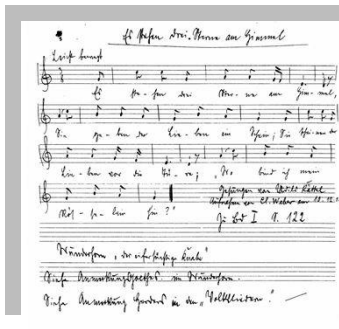 Es stehen drei Sterne am Himmel
Leicht bewegt
Es ste-hen drei Ster-ne am Him-mel,
Die ge-ben der Lie-ben ein Schein; Die scheinen der
Lie-ben vor die Tü-re; Wo bind ich mein
Röß-le-lein hin?"
Gesungen von
Aufnahme von El. Weber am
Zu Bd I S. 122
Wunderhorn, "der eifersüchtige Knabe"
Siehe Anmerkung im Wunderhorn.
Siehe Anmerkung Herders in den "Volksliedern."